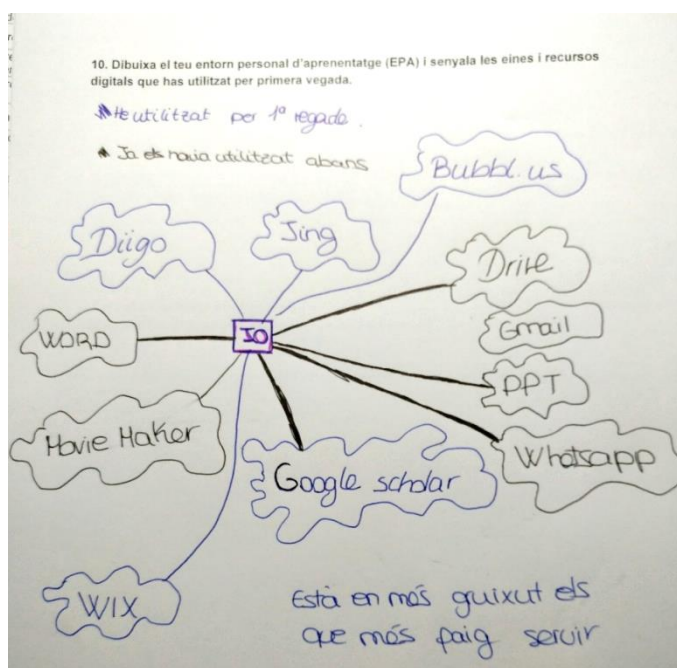 10. Dibuixa el teu entorn personal d'aprenentatge (EPA) i senyala les eines i recursos
digitals que has utilitzat per primera vegada.
He utilitzat per 1ª vegada.
Ja els havia utilitzat abans
Bubbl.us
Diigo
Jing
Drive
Gmail
WORD
IO
PPT
Movie Maker
Google scholar
Whatsapp
WIX
Està en més guixut els
que més faig servir